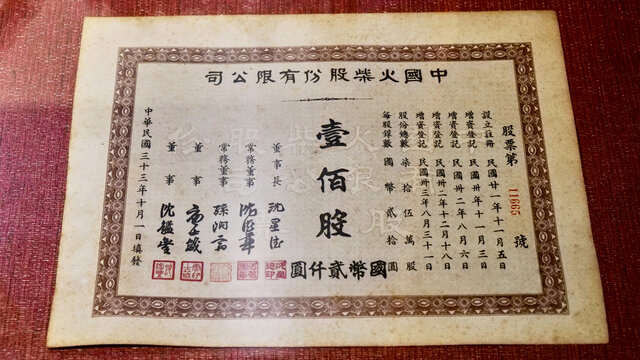 中國火柴股份有限公司
股票第 11665 號
設立註冊 民國廿一年十一月五日
增資登記 民國卅年十一月三日
增資登記 民國卅二年八月六日
增資登記 民國卅二年十二月十八
增資登記 民國卅三年八月三十一
股份總數 柒拾伍萬股
每股銀數 國幣貳拾圓
壹佰股
國幣貳仟圓
董事長 沈星德
常務董事
常務董事 孫潤齋
董事
董事 沈鑑堂
中華民國三十三年十月一日填發